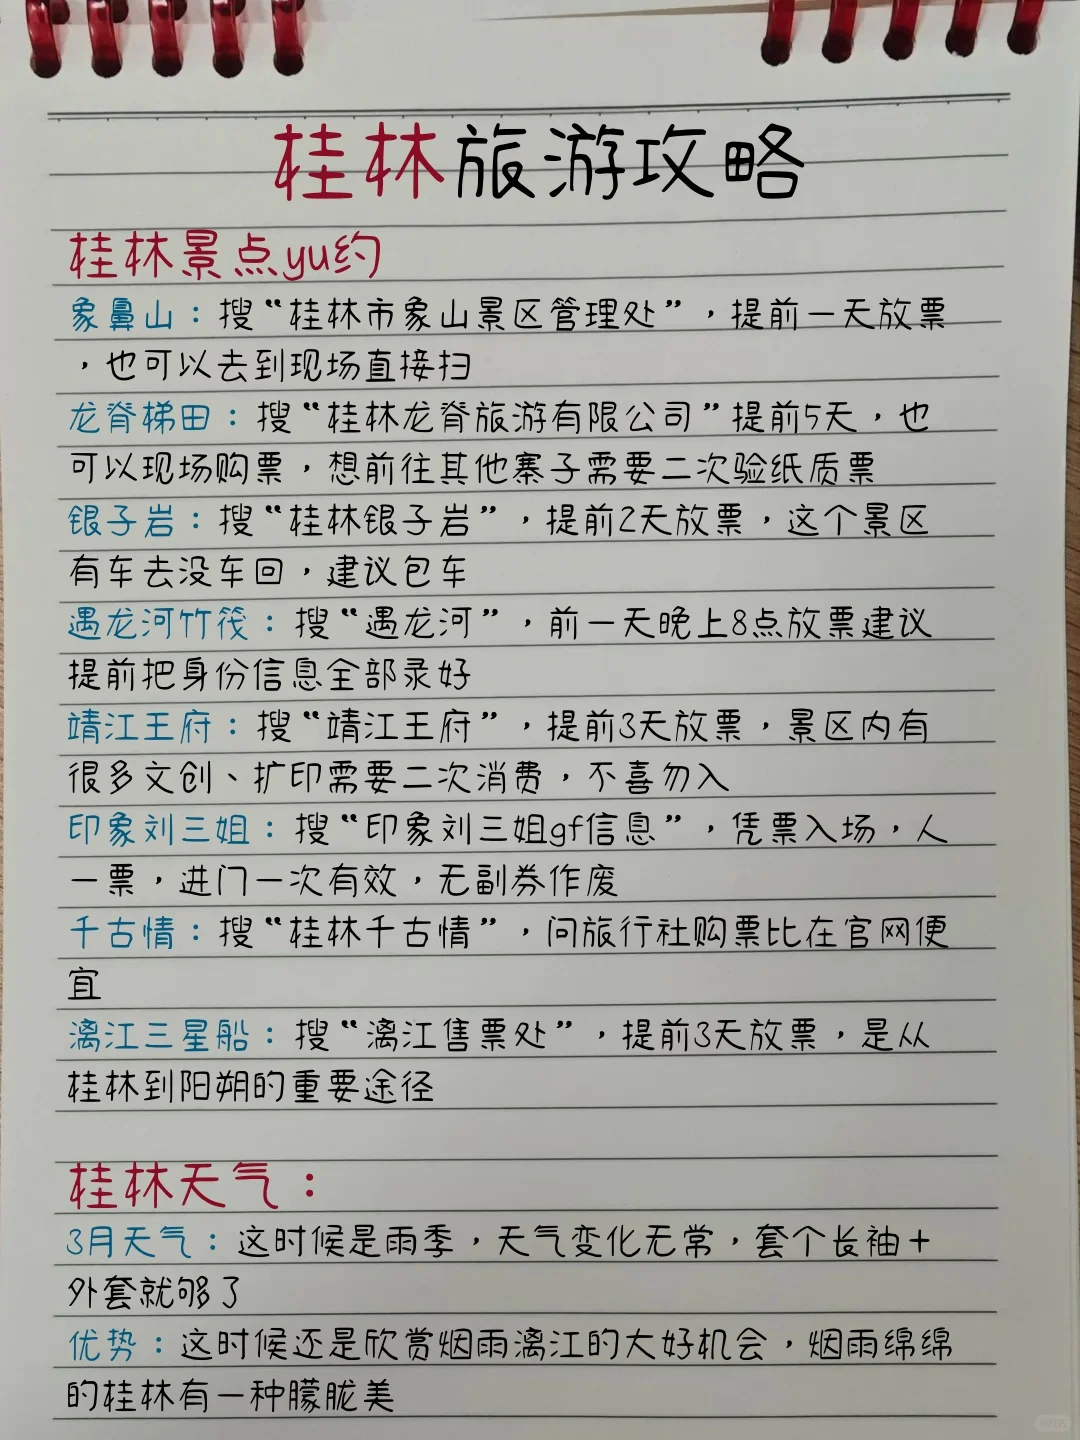 桂林旅游攻略
桂林景点yu约
象鼻山：搜“桂林市象山景区管理处”，提前一天放票
，也可以去到现场直接扫
龙脊梯田：搜“桂林龙脊旅游有限公司”提前5天，也
可以现场购票，想前往其他寨子需要二次验纸质票
银子岩：搜“桂林银子岩”，提前2天放票，这个景区
有车去没车回，建议包车
遇龙河竹筏：搜“遇龙河”，前一天晚上8点放票建议
提前把身份信息全部录好
靖江王府：搜“靖江王府”，提前3天放票，景区内有
很多文创、扩印需要二次消费，不喜勿入
印象刘三姐：搜“印象刘三姐gf信息”，凭票入场，人
一票，进门一次有效，无副券作废
千古情：搜“桂林千古情”，问旅行社购票比在官网便
宜
漓江三星船：搜“漓江售票处”，提前3天放票，是从
桂林到阳朔的重要途径
桂林天气：
3月天气：这时候是雨季，天气变化无常，套个长袖+
外套就够了
优势：这时候还是欣赏烟雨漓江的大好机会，烟雨绵绵
的桂林有一种朦胧美